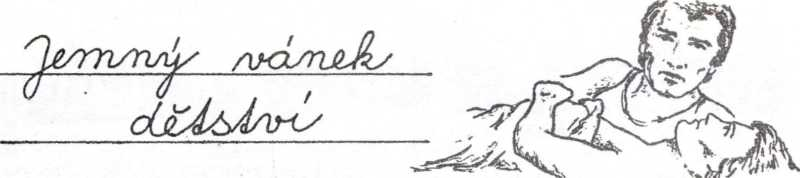 Jemný vánek
dětství